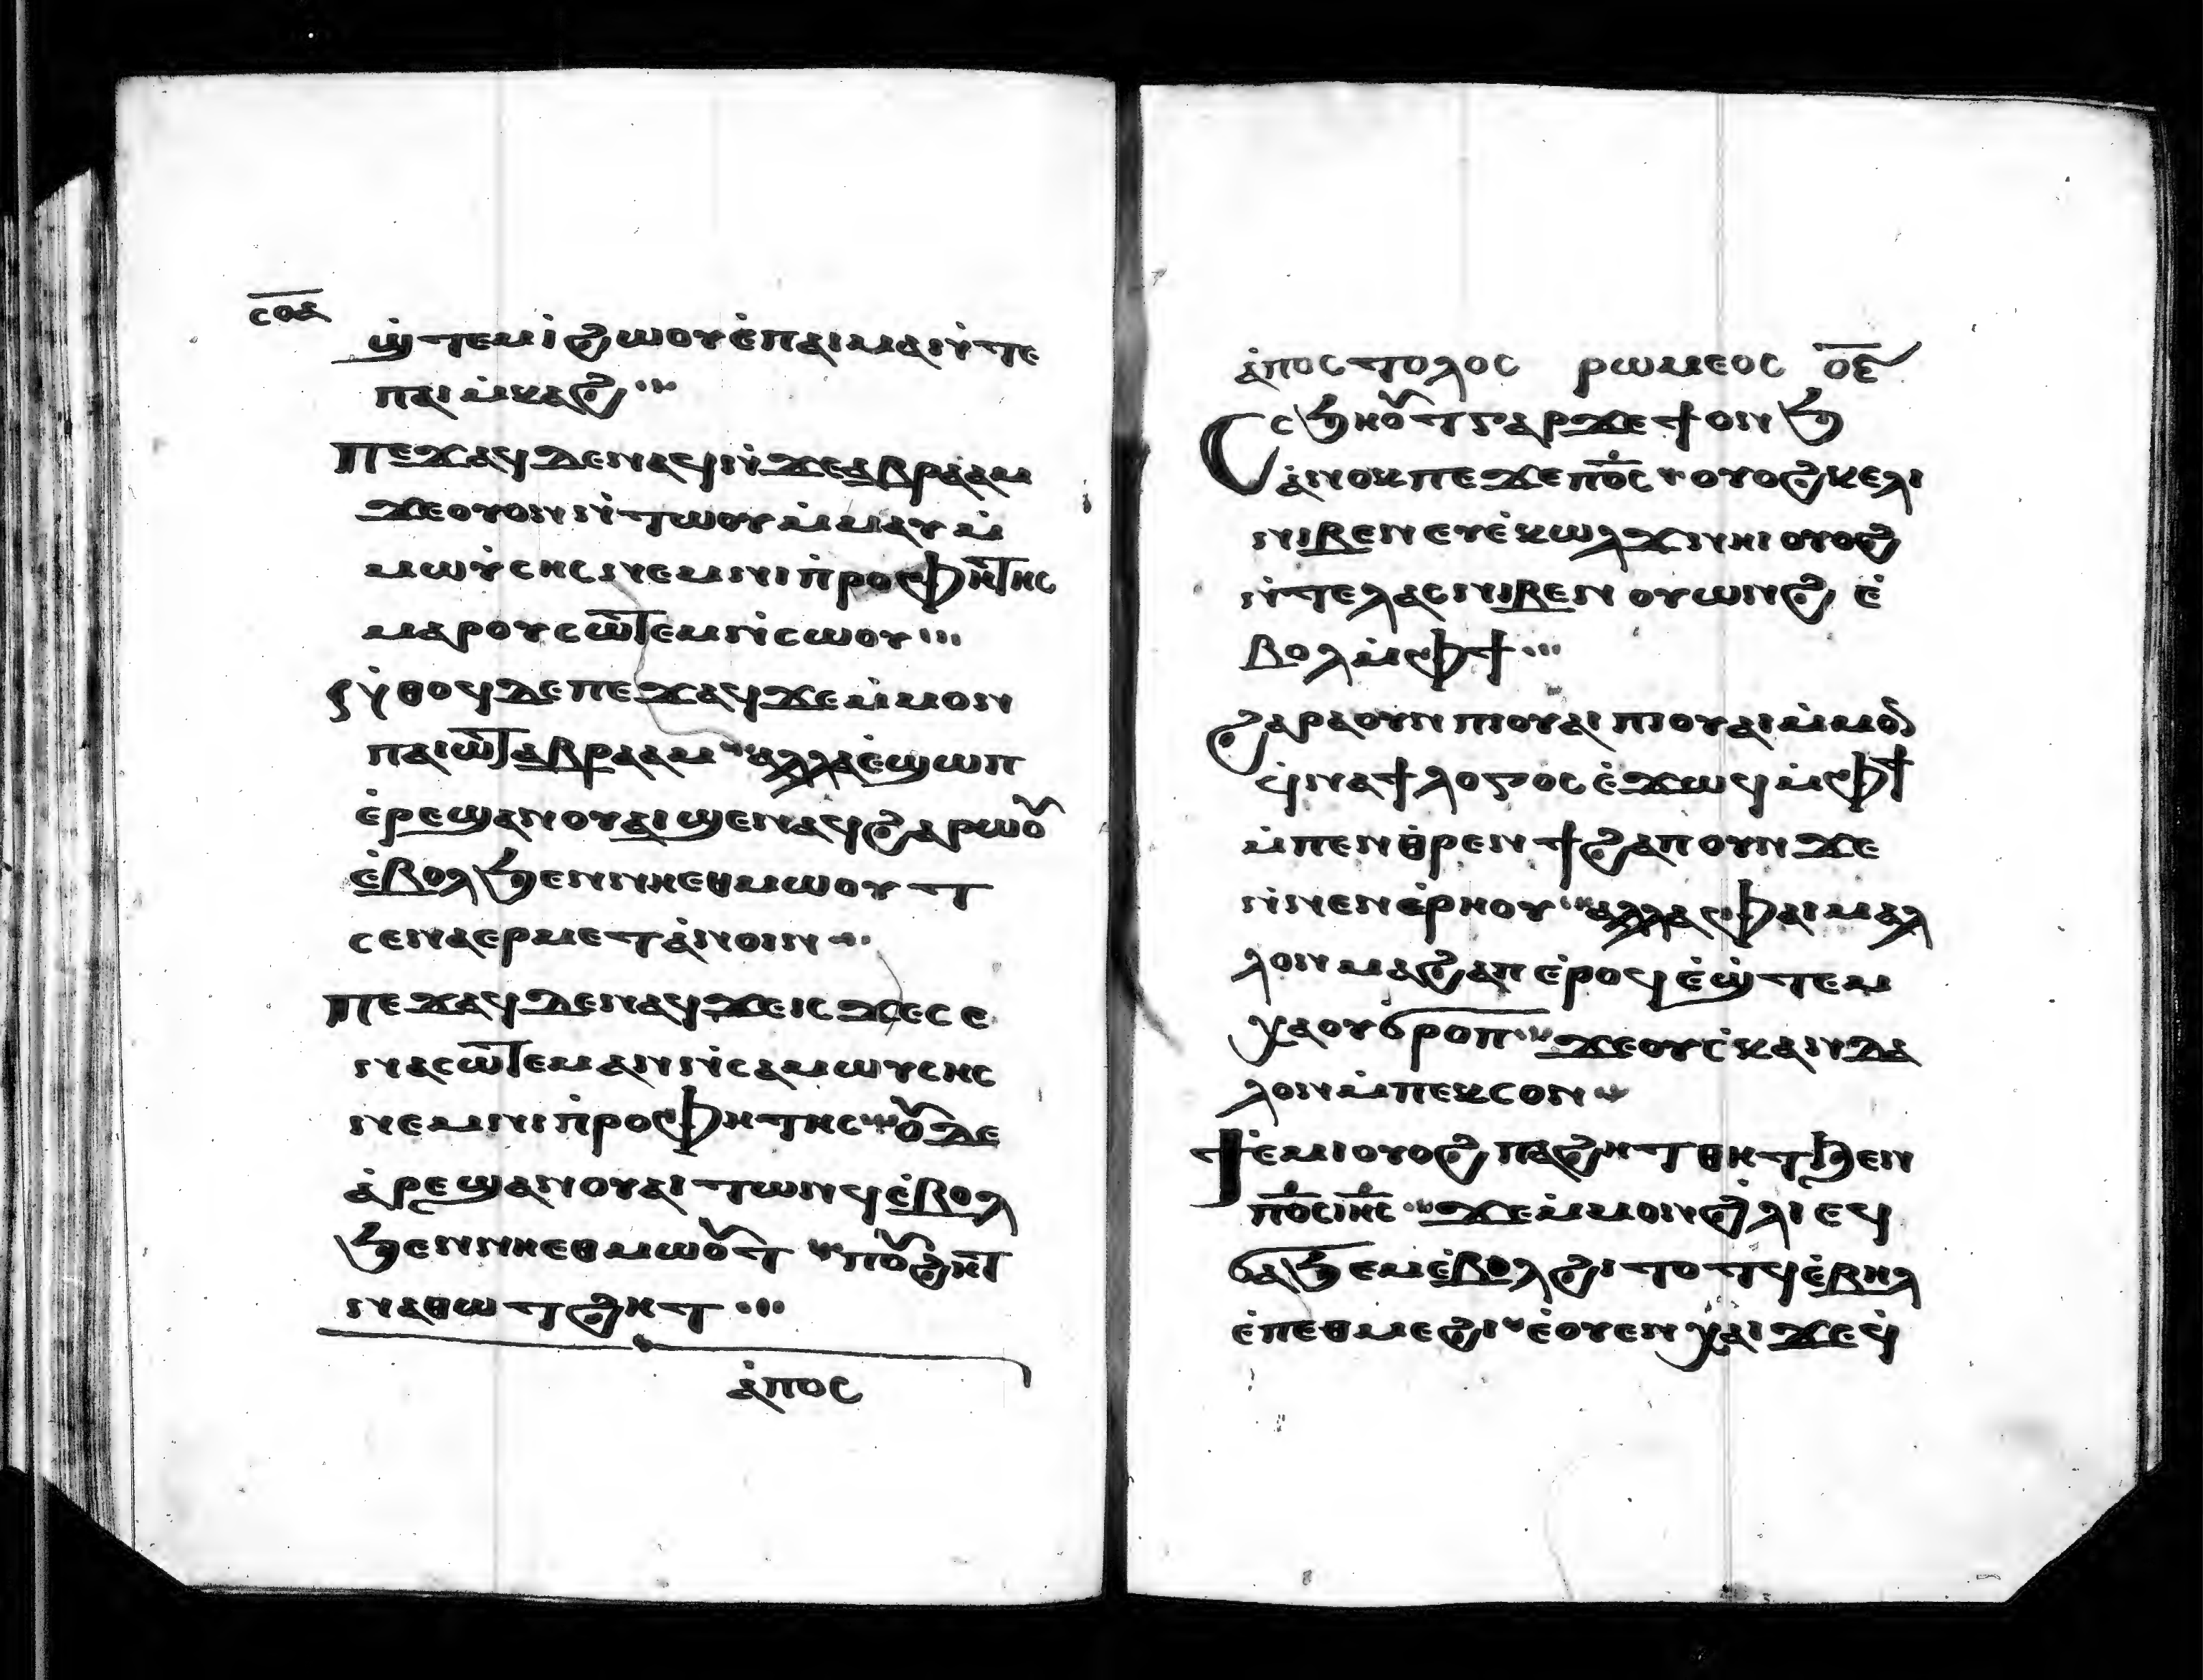 ⲥⲟⲁ
ϣ̇ⲧⲉⲙⲓ̇ϩⲱⲟⲩⲉ̇ⲡⲁⲓⲙⲁⲛ̇ⲧⲉ
ⲡⲁⲓⲙ̇ⲕⲁϩ
ⲡⲉϫⲁϥⲇⲉⲛⲁϥⲛ̇ϫⲉⲁⲃⲣⲁⲁⲙ
ϫⲉⲟⲩⲟⲛⲛ̇ⲧⲱⲟⲩⲙ̇ⲙⲁⲩⲙ̇
ⲙⲱⲩ̇ⲥⲏⲥⲛⲉⲙⲛⲓⲡ̇ⲣⲟⲫⲏⲧⲏⲥ
ⲙⲁⲣⲟⲩⲥⲱⲧⲉⲙⲛ̇ⲥⲱⲟⲩ
ⲛ̇ⲑⲟϥⲇⲉⲡⲉϫⲁϥϫⲉⲙ̇ⲙⲟⲛ
ⲡⲁⲓⲱⲧⲁⲃⲣⲁⲁⲙ ⲁⲗⲗⲁⲉ̇ϣⲱⲡ
ⲉ̇ⲣⲉϣⲁⲛⲟⲩⲁⲓϣⲉⲛⲁϥϩⲁⲣⲱⲟ̃
ⲉ̇ⲃⲟⲗϧⲉⲛⲛⲏⲉⲑⲙⲱⲟⲩⲧ
ⲥⲉⲛⲁⲉⲣⲙⲉⲧⲁ̇ⲛⲟⲓⲛ
ⲡⲉϫⲁϥⲇⲉⲛⲁϥϫⲉⲓⲥϫⲉⲥⲉ
ⲛⲁⲥⲱⲧⲉⲙⲁⲛⲛ̇ⲥⲁⲙⲱⲩⲥⲏⲥ
ⲛⲉⲙⲛⲓⲡ̇ⲣⲟⲫⲏⲧⲏⲥ ⲟ̃ⲇⲉ
ⲁ̇ⲣⲉϣⲁⲛⲟⲩⲁⲓⲧⲱⲛϥⲉ̇ⲃⲟⲗ
ϧⲉⲛⲛⲏⲉⲑⲙⲱⲟ̃ⲧ ⲡⲟ̃ϩⲏⲧ
ⲛⲁⲑⲱⲧϩⲏⲧ
ⲁ̇ⲡⲟⲥ
ⲁ̇ⲡⲟⲥⲧⲟⲗⲟⲥ ⲣⲱⲙⲉⲟⲥ ⲟⲉ
ⲥϧⲏⲟ̃ⲧⲅⲁⲣϫⲉϯⲟⲛϧ
ⲁ̇ⲛⲟⲕⲡⲉϫⲉⲡⲟ̅ⲥ ⲟⲩⲟϩⲕⲉⲗⲓ
ⲛⲓⲃⲉⲛⲉⲩⲉ̇ⲕⲱⲗϫⲛⲏⲓⲟⲩⲟϩ
ⲛ̇ⲧⲉⲗⲁⲥⲛⲓⲃⲉⲛ ⲟⲩⲱⲛϩ ⲉ̇
ⲃⲟⲗⲙ̇ⲫϯ
ϩⲁⲣⲁⲟⲩⲛⲡⲓⲟⲩⲁⲓⲡⲓⲟⲩⲁⲓⲙ̇ⲙⲟ
ϥ̇ⲛⲁϯⲗⲟⲅⲟⲥⲉ̇ϫⲱϥⲙ̇ⲫϯ
ⲙ̇ⲡⲉⲛⲑ̇ⲣⲉⲛϯϩⲁⲡⲟⲩⲛϫⲉ
ⲛ̇ⲛⲉⲛⲉ̇ⲣⲏⲟⲩ ⲁⲗⲗⲁⲫⲁⲓⲙⲁⲗ
ⲗⲟⲛⲙⲁϩⲁⲡⲉ̇ⲣⲟϥⲉ̇ϣ̇ⲧⲉⲙ
ⲭⲁⲟⲩϭⲣⲟⲡ ϫⲉⲟⲩⲥ̇ⲕⲁⲛⲇⲁ
ⲗⲟⲛⲙ̇ⲡⲉⲕⲥⲟⲛ
ϯⲉ̇ⲙⲓⲟⲩⲟϩⲡⲁϩⲏⲧⲑⲏⲧϧⲉⲛ
ⲡⲟ̅ⲥⲓⲏ̅ⲥ ϫⲉⲙ̇ⲙⲟⲛϩ̇ⲗⲓⲉϥ
ϭⲁϧⲉⲙⲉ̇ⲃⲟⲗϩⲓⲧⲟⲧϥⲉ̇ⲃⲏⲗ
ⲉ̇ⲡⲉⲑⲙⲉϩⲓ ⲉ̇ⲟⲩⲉⲛⲭⲁⲓϫⲉϥ̇